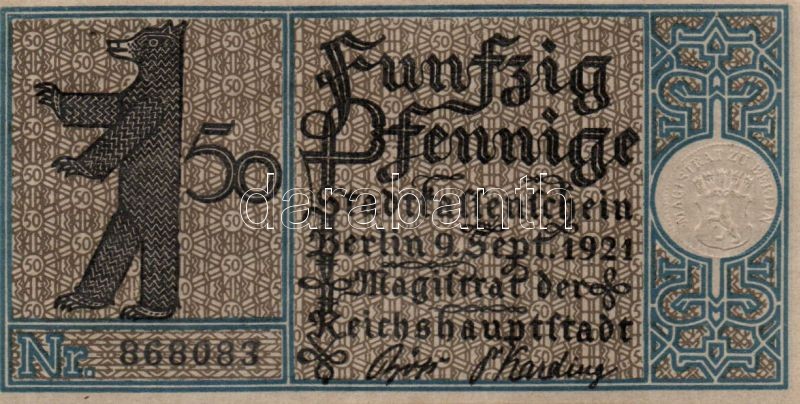 Funfzig
Pfennige
50
Stadtkassenschein
Berlin 9. Sept. 1921
Magistrat der
Reichshauptstadt
Nr. 868083
Böß Dr Karding
MAGISTRAT ZU BERLIN
darabanth